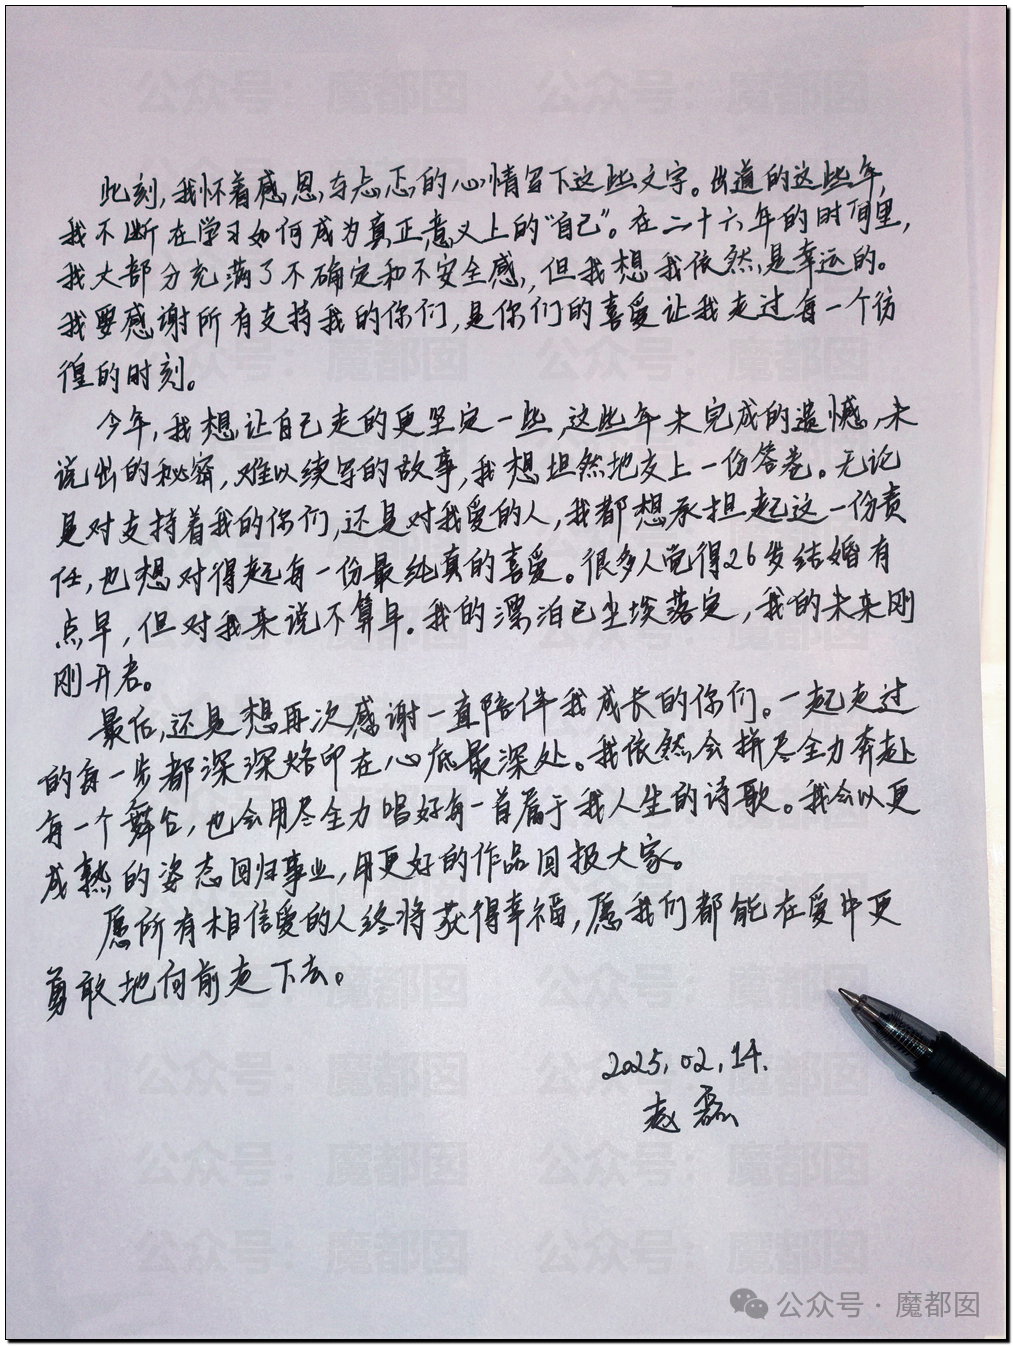 此刻，我怀着感恩与忐忑的心情留下这些文字。出道的这些年，
我不断在学习如何成为真正意义上的“自己”。在二十六年的时间里，
我大部分充满了不确定和不安全感，但我想我依然是幸运的。
我要感谢所有支持我的你们，是你们的喜爱让我走过每一个彷
徨的时刻。
今年，我想让自己走的更坚定一些，这些年未完成的遗憾，未
说出的秘密，难以续写的故事，我想坦然地交上一份答卷。无论
是对支持着我的你们，还是对我爱的人，我都想承担起这一份责
任，也想对得起每一份最纯真的喜爱。很多人觉得26岁结婚有
点早，但对我来说不算早。我的漂泊已尘埃落定，我的未来刚
刚开启。
最后，还是想再次感谢一直陪伴我成长的你们。一起走过
的每一步都深深烙印在心底最深处。我依然会拼尽全力奔赴
每一个舞台，也会用尽全力唱好每一首属于我人生的诗歌。我会以更
成熟的姿态回归事业，用更好的作品回报大家。
愿所有相信爱的人终将获得幸福，愿我们都能在爱中更
勇敢地向前走下去。
2025.02.14.
赵磊
公众号·魔都囡